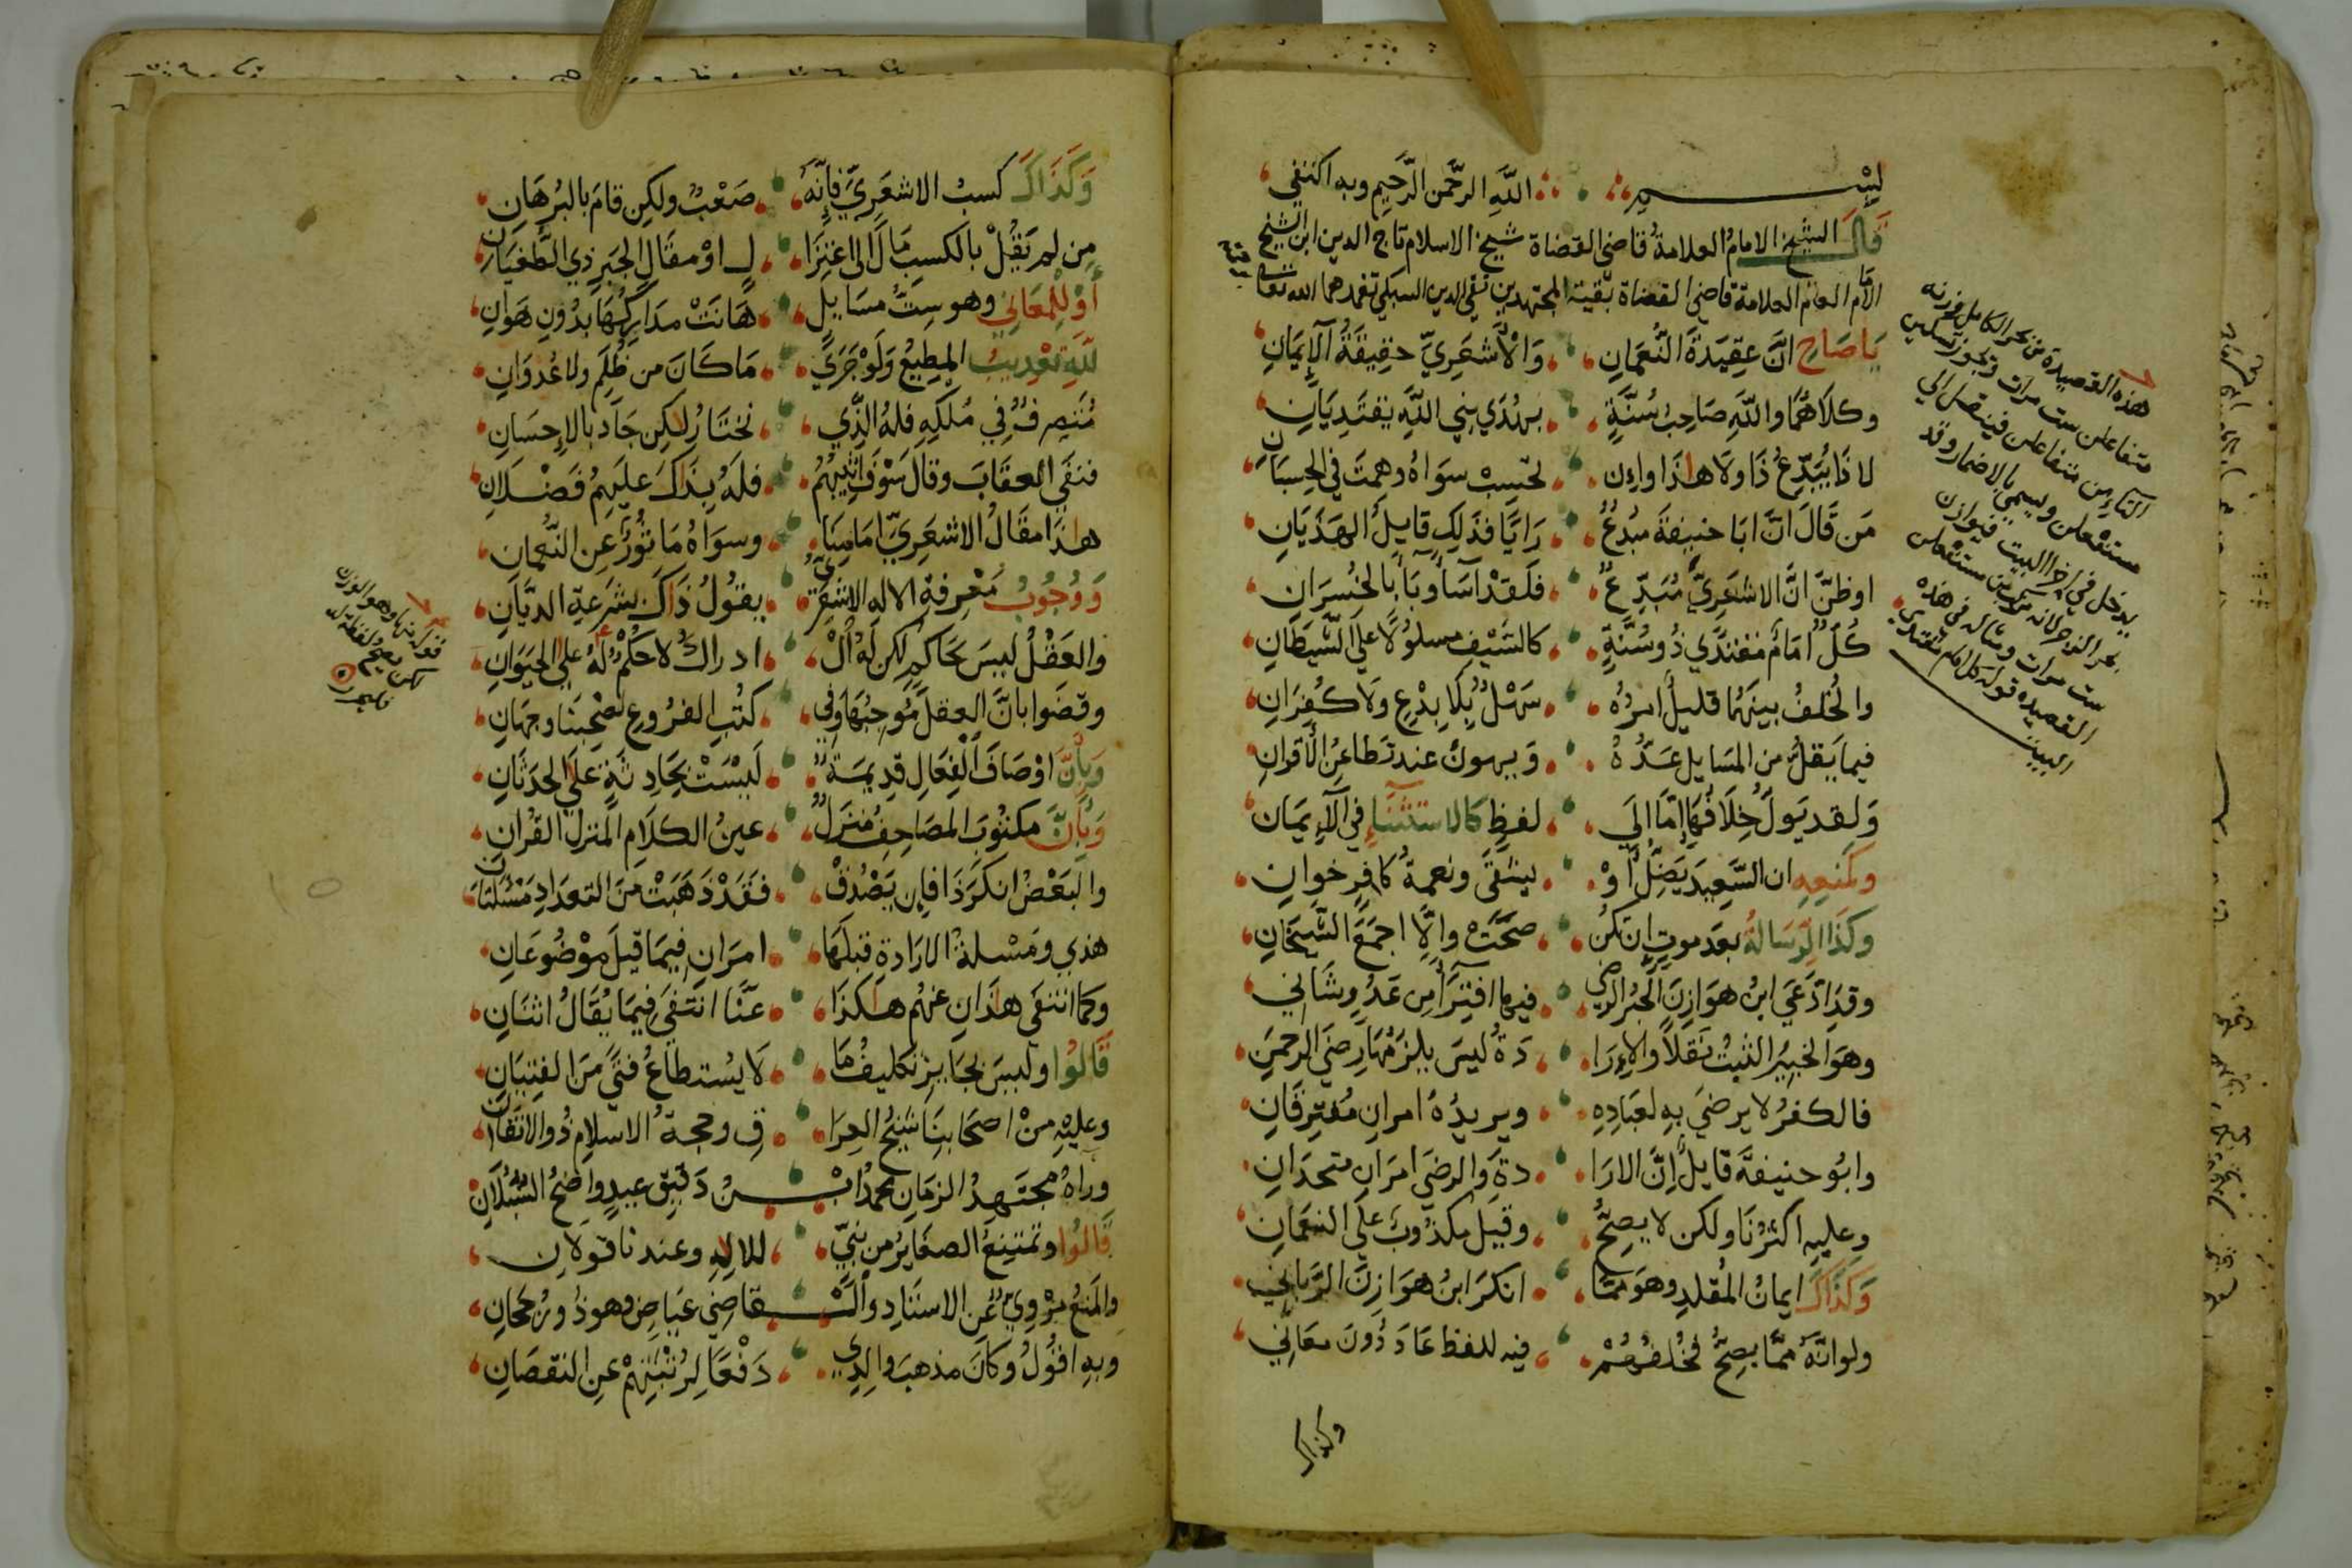 بســـــم الله الرحمن الرحيم وبه اكتفي
قال الشيخ الامام العلامة قاضي القضاة شيخ الاسلام تاج الدين ابن الشيخ
الامام العالم العلامة قاضي القضاة بقية المجتهدين تقي الدين السبكي تغمدهما الله تعالى
يا صاح ان عقيدة النعمان والاشعري حقيقة الايمان
وكلاهما والله صاحب سنة بهدي نبي الله يقتديان
لا ذا يبدع ذا ولا هذا وان تحسب سواه وهمت في الحسبان
من قال ان ابا حنيفة مبدع رايا فذلك قايل الهذيان
او ظن ان الاشعري مبدع فلقد اسا وبا بالخسران
كل امام مقتدي ذو سنة كالسيف مسلولا على الشيطان
والخلف بينهما قليل امره سهل بلا بدع ولا كفران
فيما يقل من المسايل عده ويهون عند تطاعن الاقران
ولقد يول خلافها اما الى لفظ كالاستثنا في الايمان
وكمنعه ان السعيد يضل او يشقى ونعمة كافر خوان
وكذا الرسالة بعد موت ان تكن صحت والا اجمع الشيخان
وقد ادعى ابن هوازن الحبر الرضي فيها افترا من عدو شاني
وهو الخبير الثبت نقلا والارا دة ليس يلزمها رضي الرحمن
فالكفر لا يرضى به لعباده ويريده امران مفترقان
وابو حنيفة قايل ان الارا دة والرضى امران متحدان
وعليه اكثرنا ولكن لا يصح وقيل مكذوب على النعمان
وكذاك ايمان المقلد وهو مما انكر ابن هوازن الرباني
ولو انه مما يصح فخلفهم فيه للفظ عاد دون معاني
وكذاك
هذه القصيدة من بحر الكامل فوزنه
متفاعلن ست مرات ويجوز تسكين
التاء من متفاعلن فينتقل الى
مستفعلن ويسمى بالاضمار وقد
يدخل في اخر البيت فيوازن
بحر الرجز لانه مستفعلن
ست مرات ومثاله في هذه
القصيده قوله كل امام مقتدي
البيت
وكذاك كسب الاشعري فانه صعب ولكن قام بالبرهان
من لم يقل بالكسب مال الى اعتزا ل او مقال الجبر ذي الطغيان
او للمعاني وهو ست مسايل هانت مداركها بدون هوان
لله تعذيب المطيع ولو جرى ما كان من ظلم ولا عدوان
متصرف في ملكه فله الذي نختار لكن جاد بالاحسان
فنفى العقاب وقال سوف اثيبهم فله بذاك عليهم فضلان
هذا مقال الاشعري امامنا وسواه ماثور عن النعمان
ووجوب معرفة الاله الاشعري يقول ذاك بشرعة الديان
والعقل ليس بحاكم لكن له ال ادراك لا حكم له على الحيوان
وقضوا بان العقل موجبها وفي كتب الفروع لصحبنا وجهان
وبان اوصاف الفعال قديمة ليست بحادثة على الحدثان
وبان مكتوب المصاحف منزل عين الكلام المنزل القران
والبعض انكر ذا فان يصدق فقد ذهبت من التعداد مسئلتان
هذي ومسلة الارادة قبلها امران فيما قيل موضوعان
وكما انتفى هذان عنهم هكذا عنا انتفى فيما يقال اثنان
قالوا وليس بجايز تكليف ما لا يستطاع فتى من الفتيان
وعليه من اصحابنا شيخ العرا ق وحجة الاسلام ذو الاتقان
وراه مجتهد الزمان محمد ابــن دقيق عيد واضح السبلان
قالوا وتمتنع الصغاير من نبي للاله وعندنا قولان
والمنع مروي عن الاستاد والـقاضي عياض وهو ذو رجحان
وبه اقول وكان مذهب والدي دفعا لرتبتهم عن النقصان